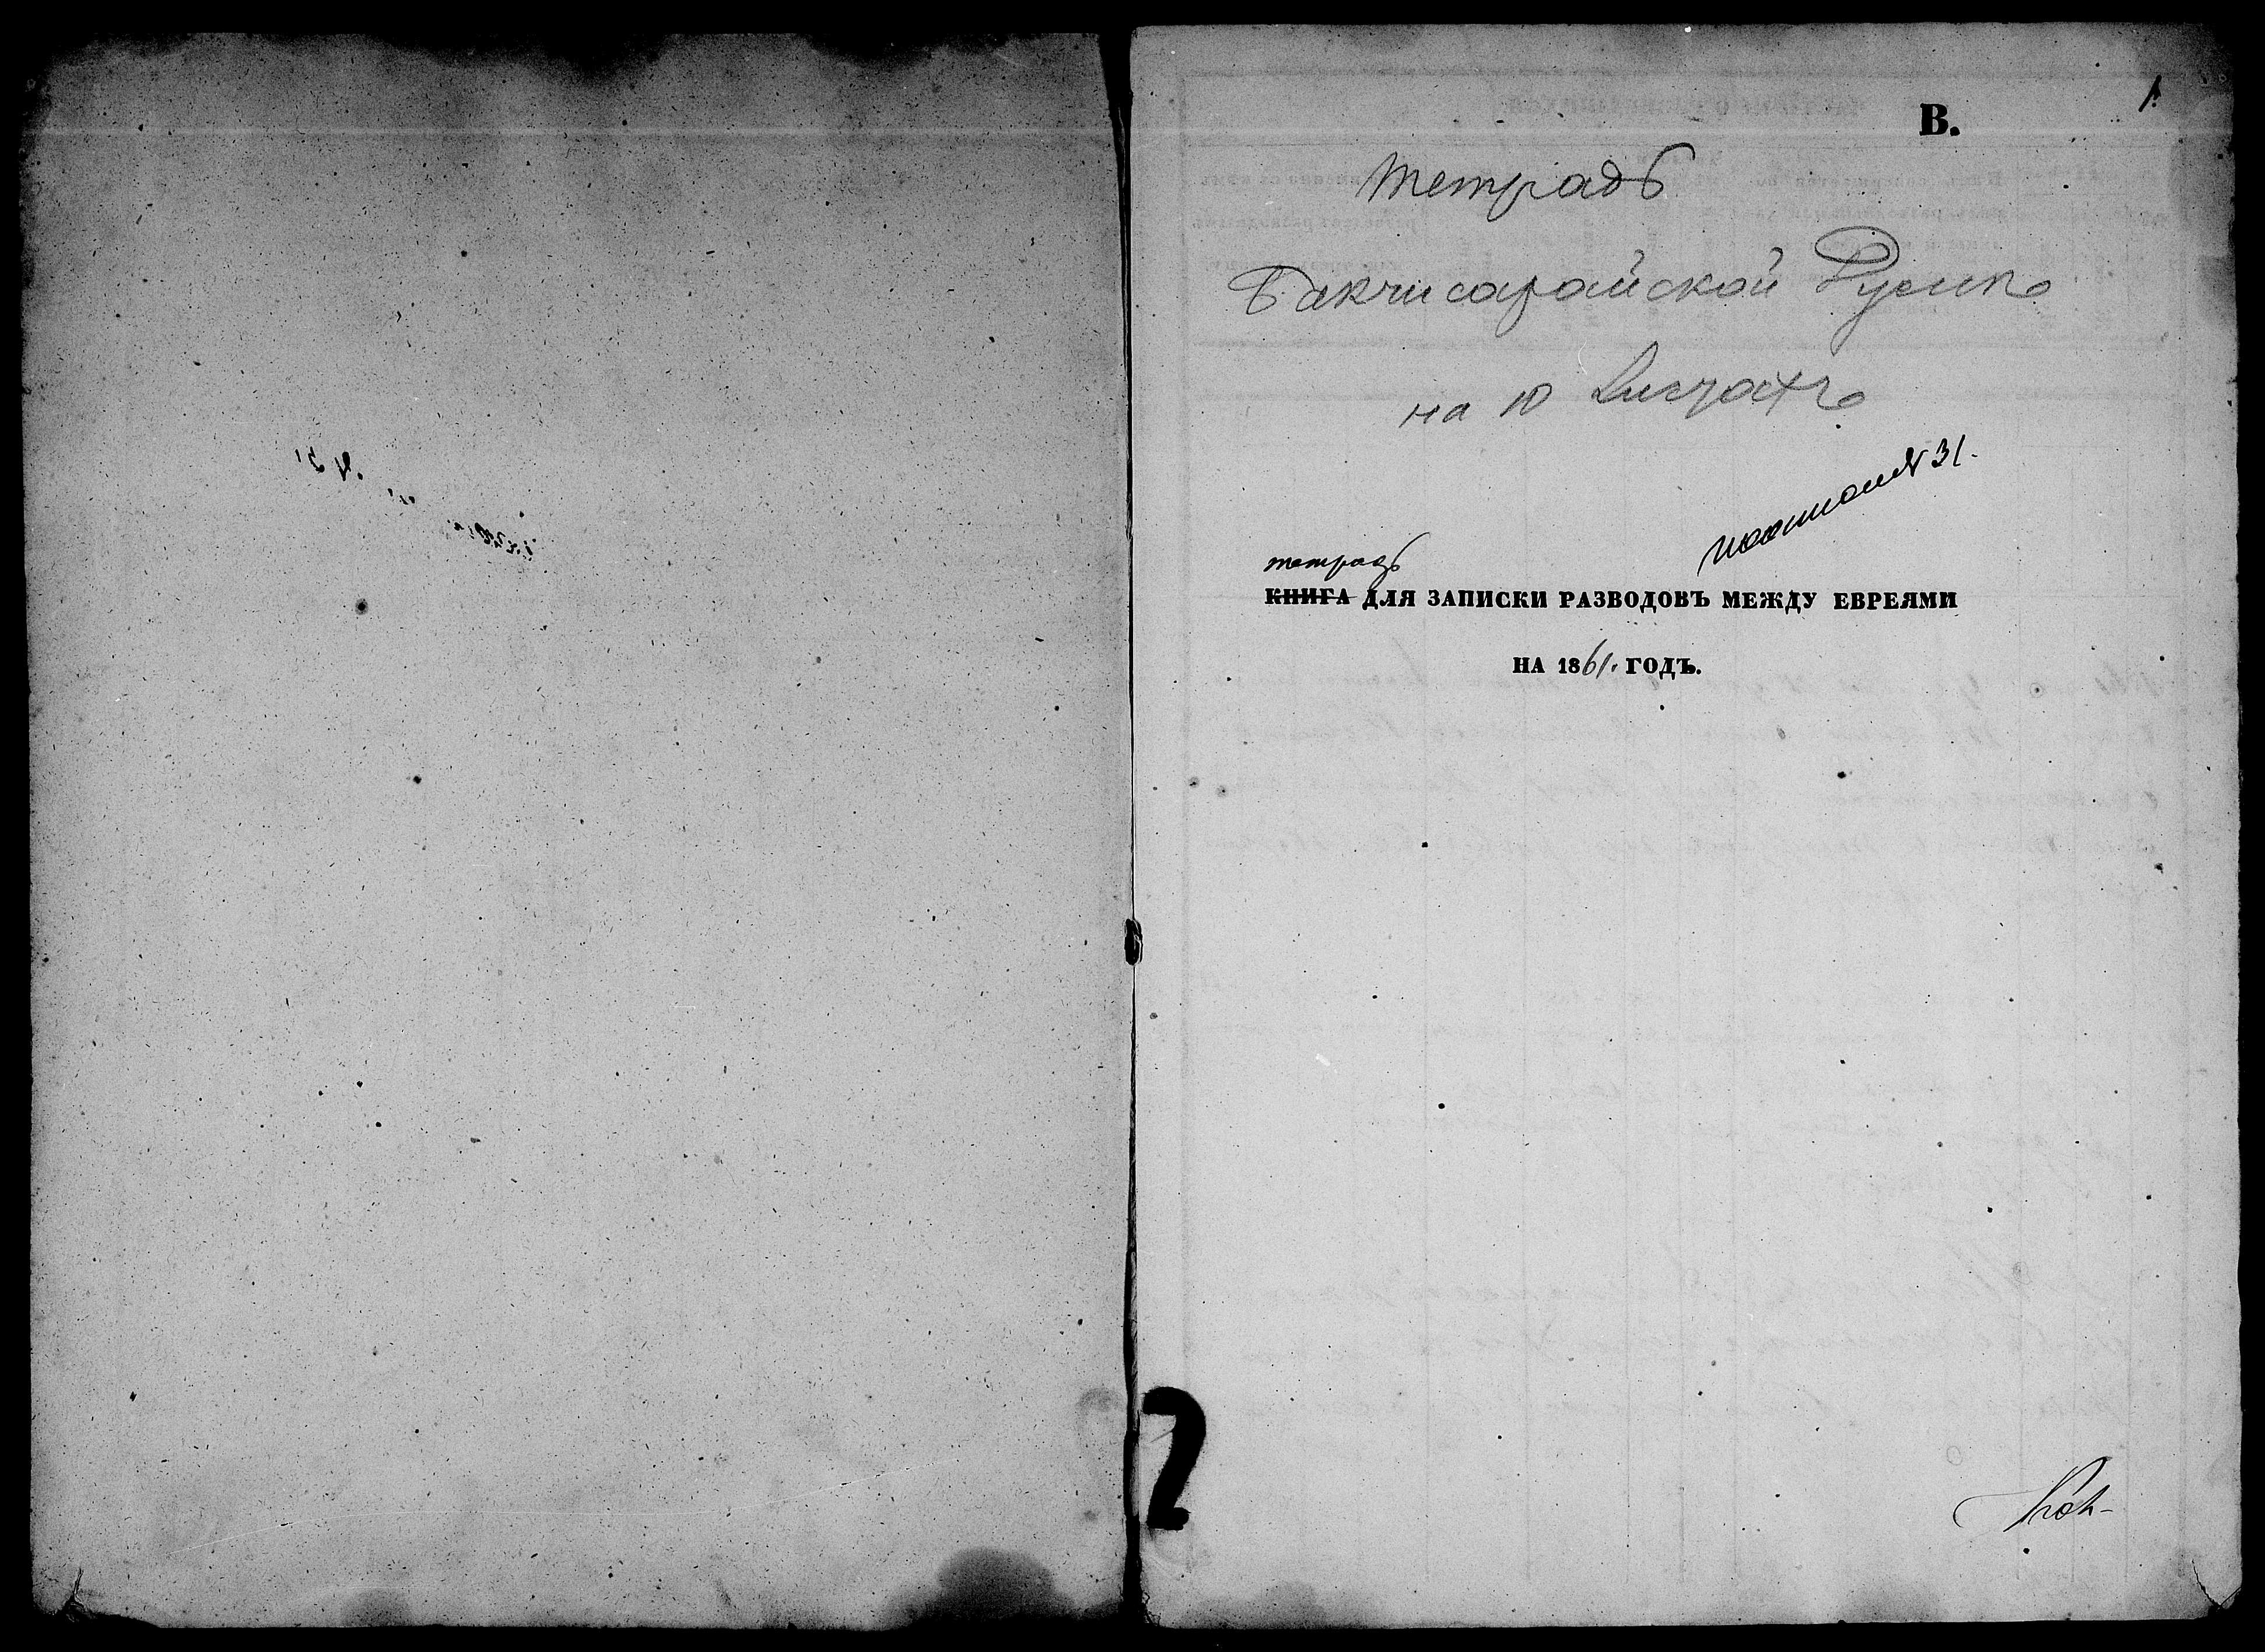 1.
В.
Тетрадь
Бакчисарайской
на 10 Листахъ
N 31.
тетрадь
КНИГА ДЛЯ ЗАПИСКИ РАЗВОДОВЪ МЕЖДУ ЕВРЕЯМИ
НА 1861. ГОДЪ.
2